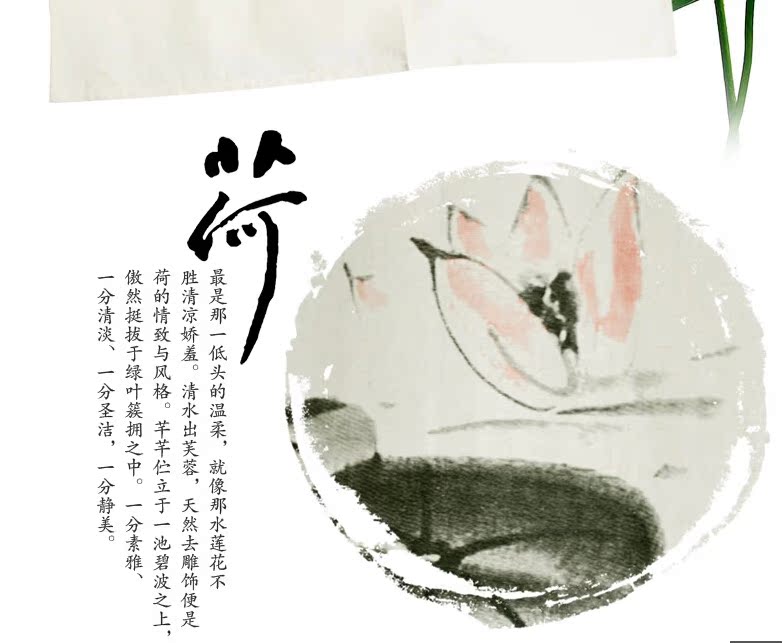 荷
最是那一低头的温柔，就像那水莲花不
胜清凉娇羞。清水出芙蓉，天然去雕饰便是
荷的情致与风格。芊芊伫立于一池碧波之上，
傲然挺拔于绿叶簇拥之中。一分素雅、
一分清淡、一分圣洁，一分静美。